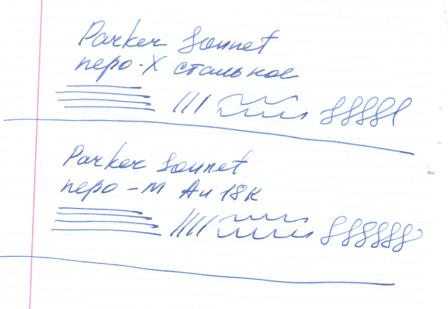 Parker Sonnet
перо-X стальное
Parker Sonnet
перо-M Au 18K